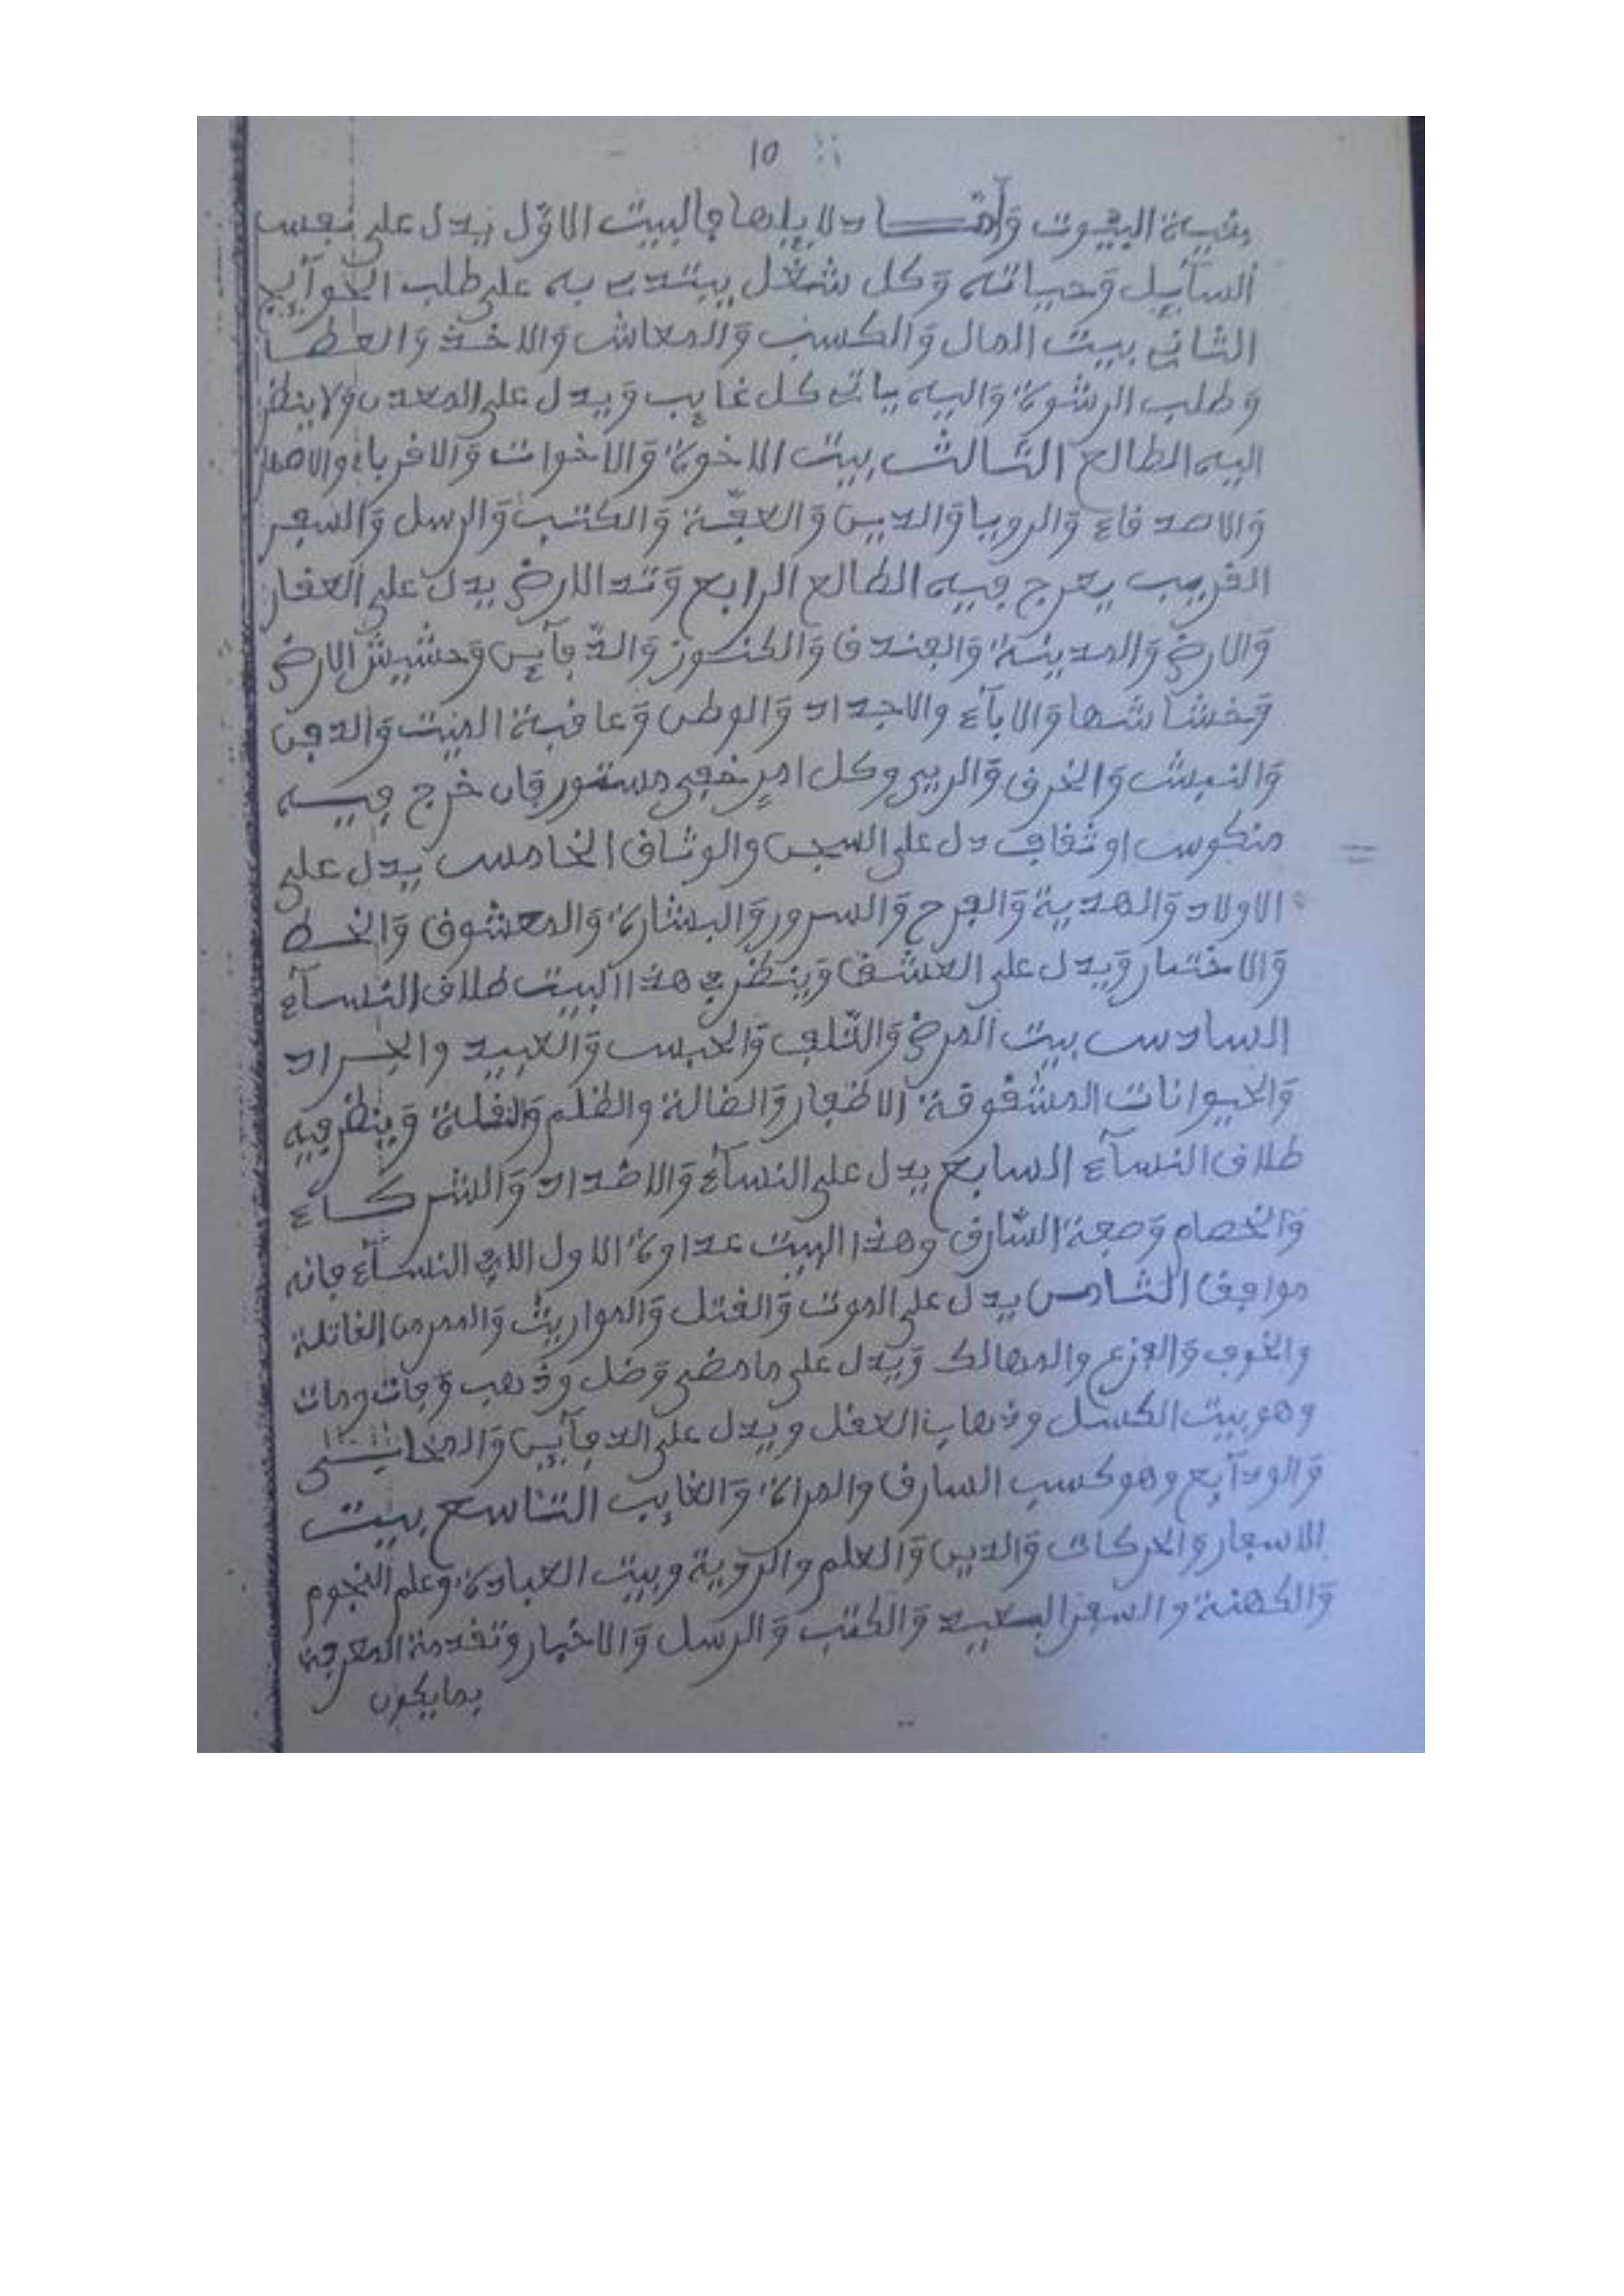 15
بقية البيوت وأمّا دلايلها فالبيت الاوّل يدل على نفس
السآيل وَحياته وَكل شغل يبتدى به على طلب الحوآيج
الثاني بيت المال وَالكسب وَالمعاش وَالاخذ وَالعطا
وَطلب الرشوة وَاليه ياتى كل غايب وَيدل على المعدن ولا ينظر
اليه الطالع الثالث بيت الاخوة وَالاخوات وَالاقرباء والاصهار
وَالاصدقاء وَالرويا وَالدين وَالعفّة وَالكتب وَالرسل وَالسفر
القريب يفرح فيه الطالع الرابع وَتد الارض يدل على العقار
وَالارض وَالمدينة وَالفندق وَالكنوز وَالدّفآين وَحشيش الارض
وَخشاشها وَالابآء والاجداد وَالوطن وَعاقبة الميت وَالدفن
وَالنبش وَالخرق وَالريى وكل امرٍ خفى مستور فان خرج فيه
منكوس او ثقاف دل على السجن والوثاق الخامس يدل على
الاولاد وَالهدية وَالفرح وَالسرور وَالبشارة وَالمعشوق وَالخط
وَالاختيار وَيدل على العشق وَينظر فى هذا البيت طلاق النسآء
السادس بيت المرض وَالتّلف وَالحبس وَالعبيد والجراد
وَالحيوانات المشقوقة الاظفار وَالضالة والظلم وَالقلة وَينظر فيه
طلاق النسآء السابع يدل على النسآء وَالاضداد وَالشركاء
وَالخصام وَصفة السّارق وهذا البيت عداوة الاول الا فى النسآء فانه
موافق الثامن يدل على الموت وَالقتل وَالمواريث وَالسموم القاتلة
والخوف وَالفزع والمهالك وَيدل على ما مضى وَضل وذهب وَفات ومات
وهو بيت الكسل وذهاب العقل ويدل على الدفآين وَالمخابى
وَالودآيع وهو كسب السارق والمراة وَالغايب التاسع بيت
الاسفار وَالحركات وَالدين وَالعلم والروية وبيت العبادة وعلم النجوم
وَالكهنة والسفر البعيد وَالكتب وَالرسل وَالاخبار وتقدمة المعرفة
بما يكون